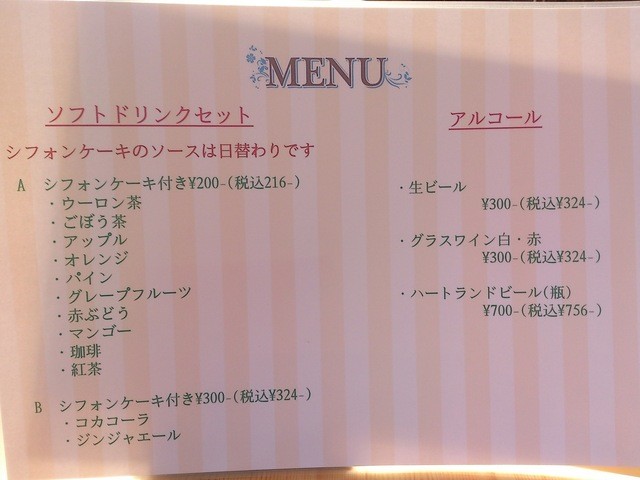 MENU
ソフトドリンクセット
シフォンケーキのソースは日替わりです
A シフォンケーキ付き¥200-(税込216-)
・ウーロン茶
・ごぼう茶
・アップル
・オレンジ
・パイン
・グレープフルーツ
・赤ぶどう
・マンゴー
・珈琲
・紅茶
B シフォンケーキ付き¥300-(税込¥324-)
・コカコーラ
・ジンジャエール
アルコール
・生ビール
¥300-(税込¥324-)
・グラスワイン白・赤
¥300-(税込¥324-)
・ハートランドビール(瓶)
¥700-(税込¥756-)